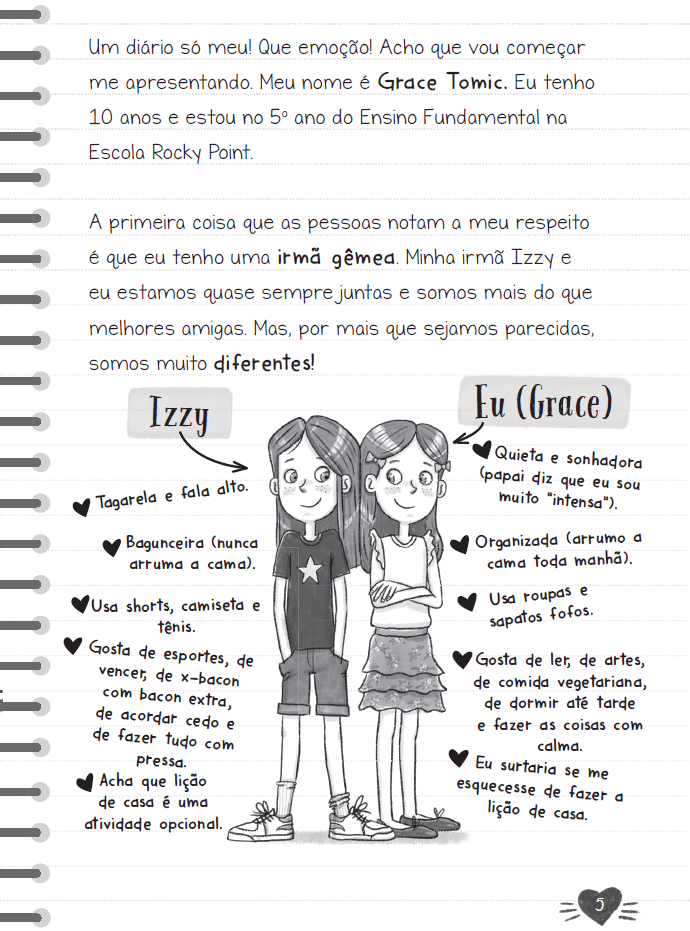 Um diário só meu! Que emoção! Acho que vou começar
me apresentando. Meu nome é Grace Tomic. Eu tenho
10 anos e estou no 5º ano do Ensino Fundamental na
Escola Rocky Point.
A primeira coisa que as pessoas notam a meu respeito
é que eu tenho uma irmã gêmea. Minha irmã Izzy e
eu estamos quase sempre juntas e somos mais do que
melhores amigas. Mas, por mais que sejamos parecidas,
somos muito diferentes!
Izzy
Tagarela e fala alto.
Bagunceira (nunca
arruma a cama).
Usa shorts, camiseta e
tênis.
Gosta de esportes, de
vencer, de x-bacon
com bacon extra,
de acordar cedo e
de fazer tudo com
pressa.
Acha que lição
de casa é uma
atividade opcional.
Eu (Grace)
Quieta e sonhadora
(papai diz que eu sou
muito "intensa").
Organizada (arrumo a
cama toda manhã).
Usa roupas e
sapatos fofos.
Gosta de ler, de artes,
de comida vegetariana,
de dormir até tarde
e fazer as coisas com
calma.
Eu surtaria se me
esquecesse de fazer a
lição de casa.
5